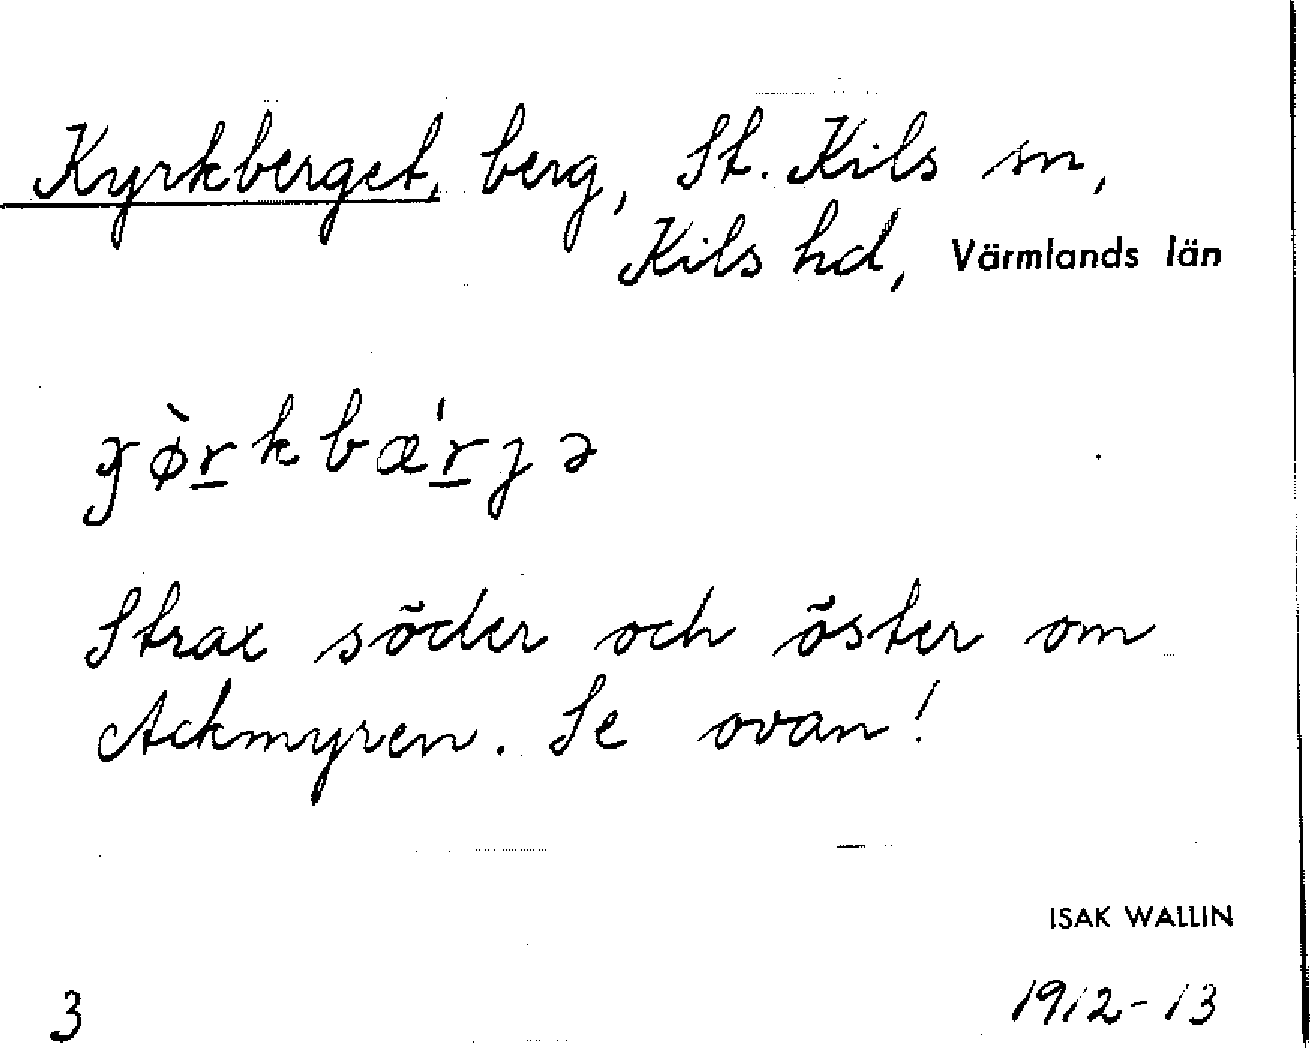 Kyrkberget, berg, St. Kils sn,
Kils hd, Värmlands län
ɣø̀r̲kbæ'r̲jə
Strax söder och öster om
Ackmyren. Se ovan!
ISAK WALLIN
3 1912-13